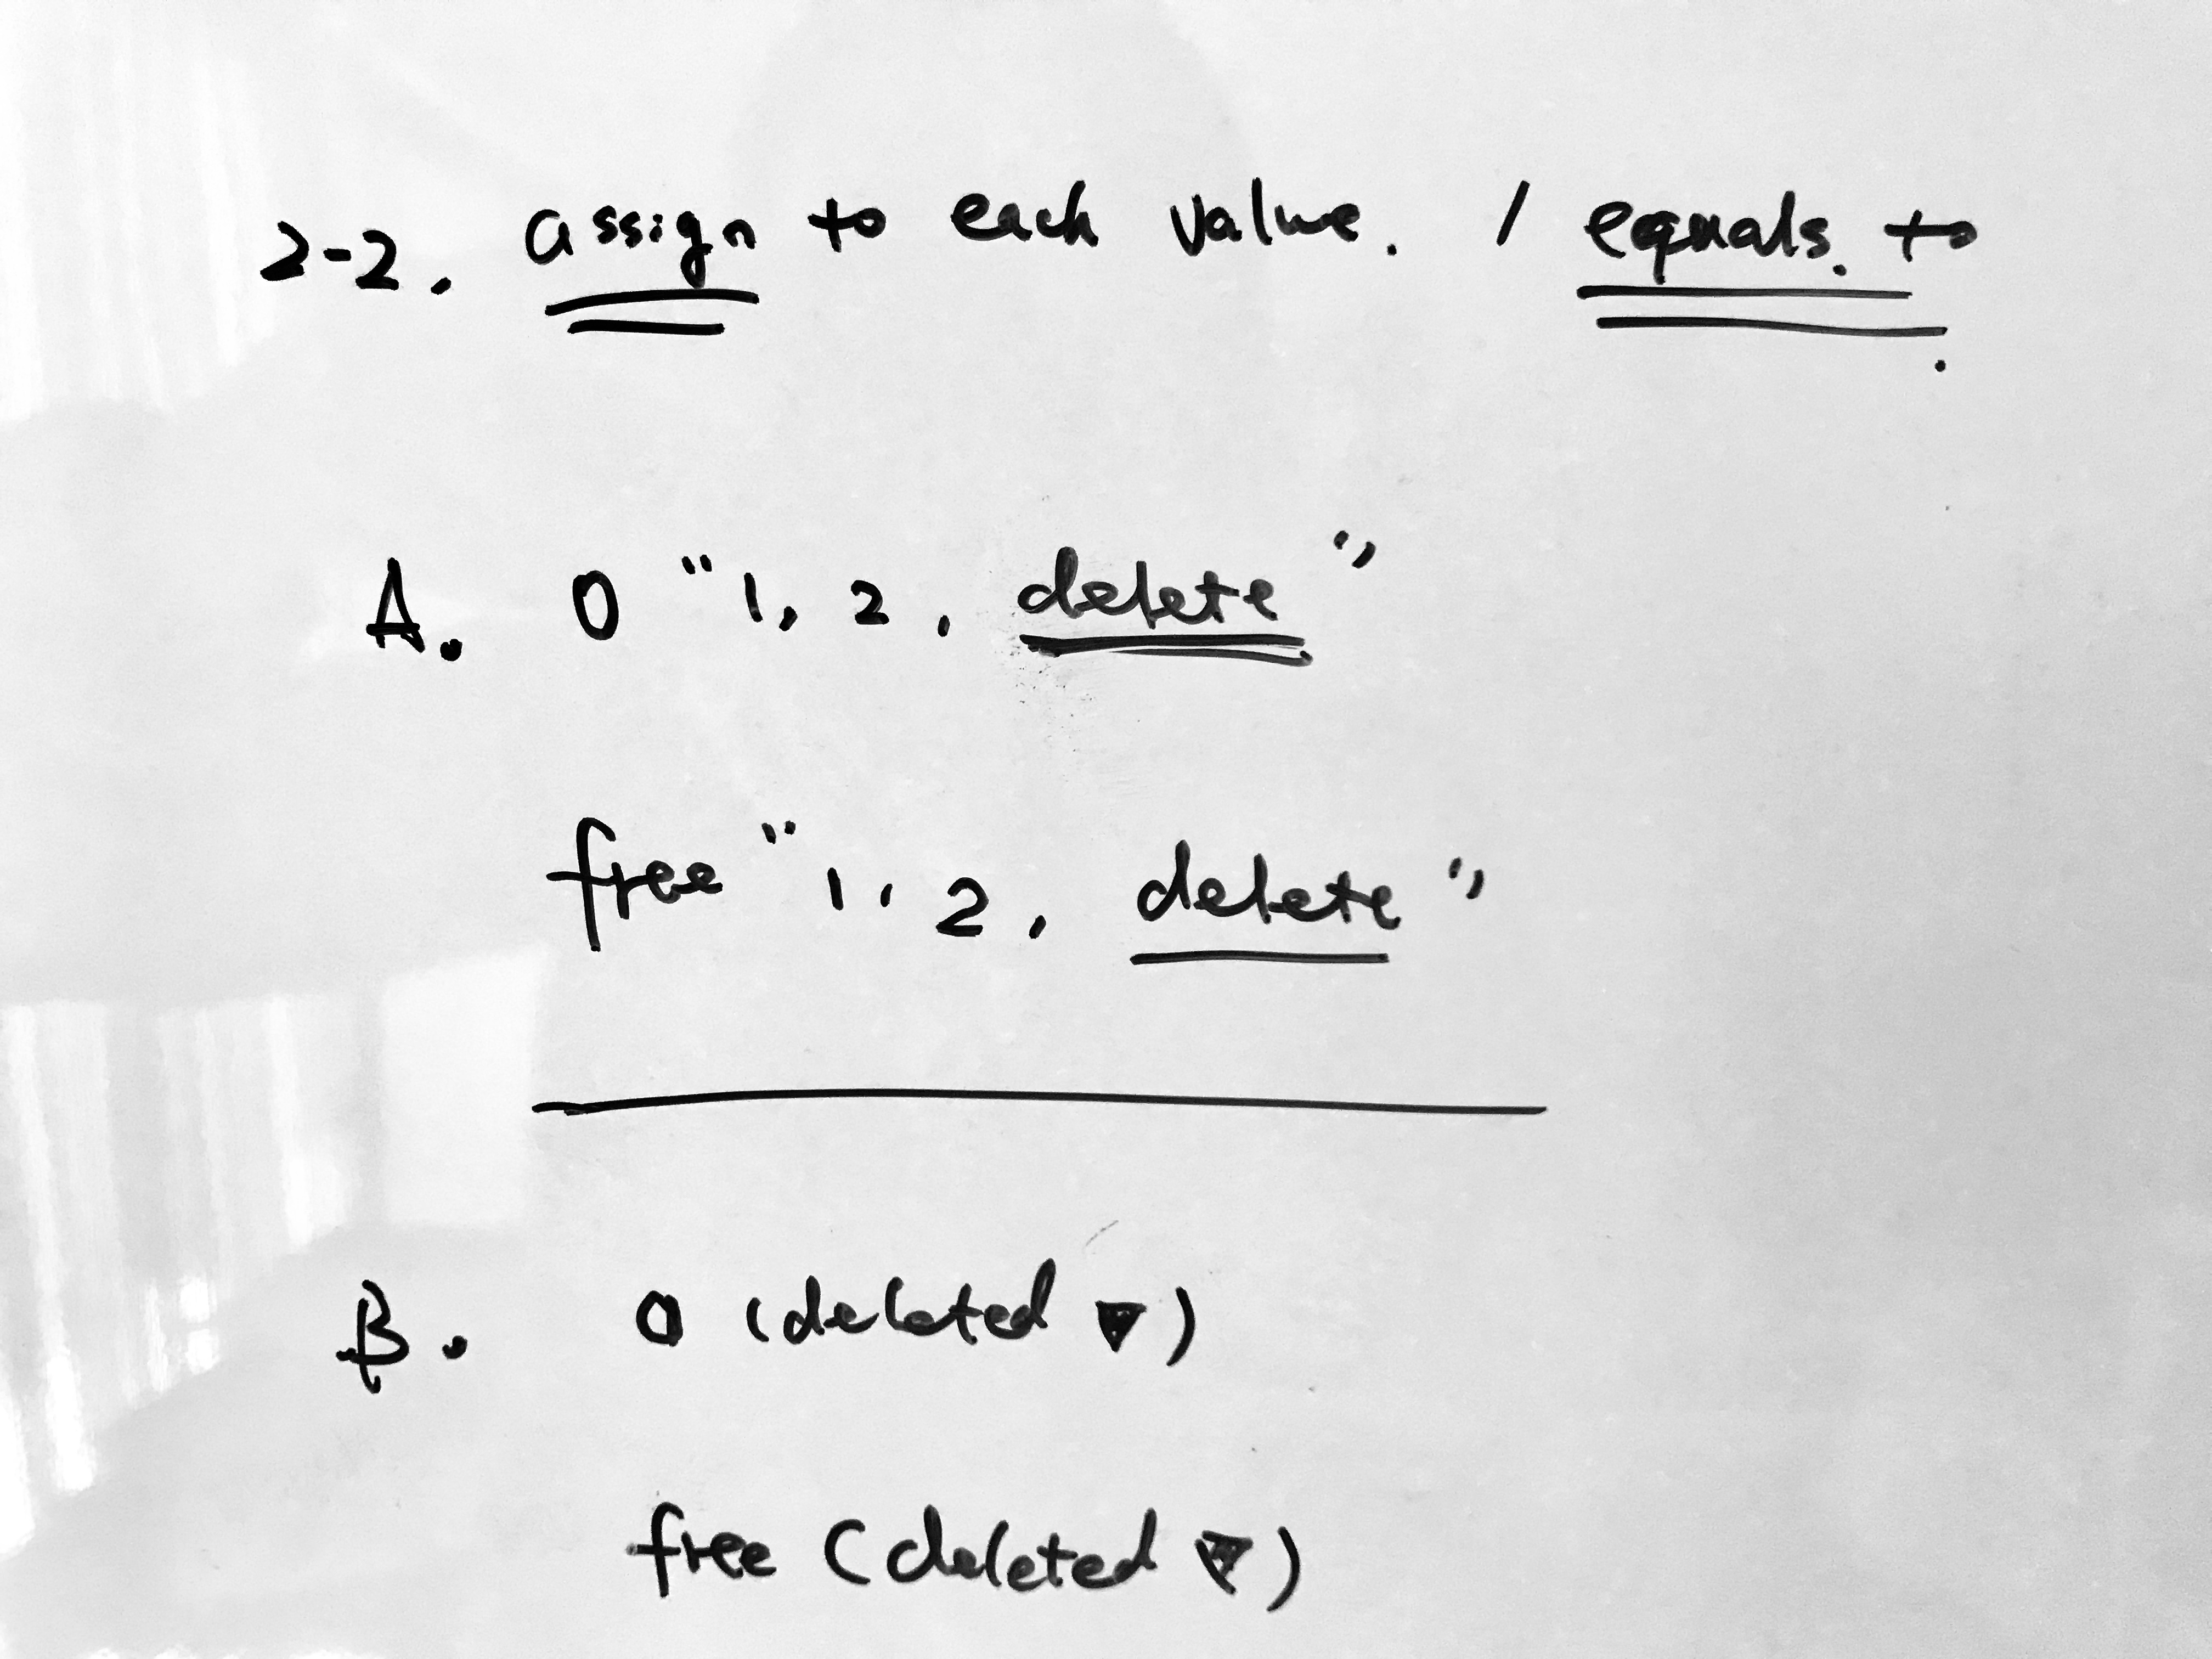 2-2. assign to each value. / equals. to
A. 0 "1, 2, delete"
free "1, 2, delete"
B. 0 (deleted ▼)
free (deleted ▼)